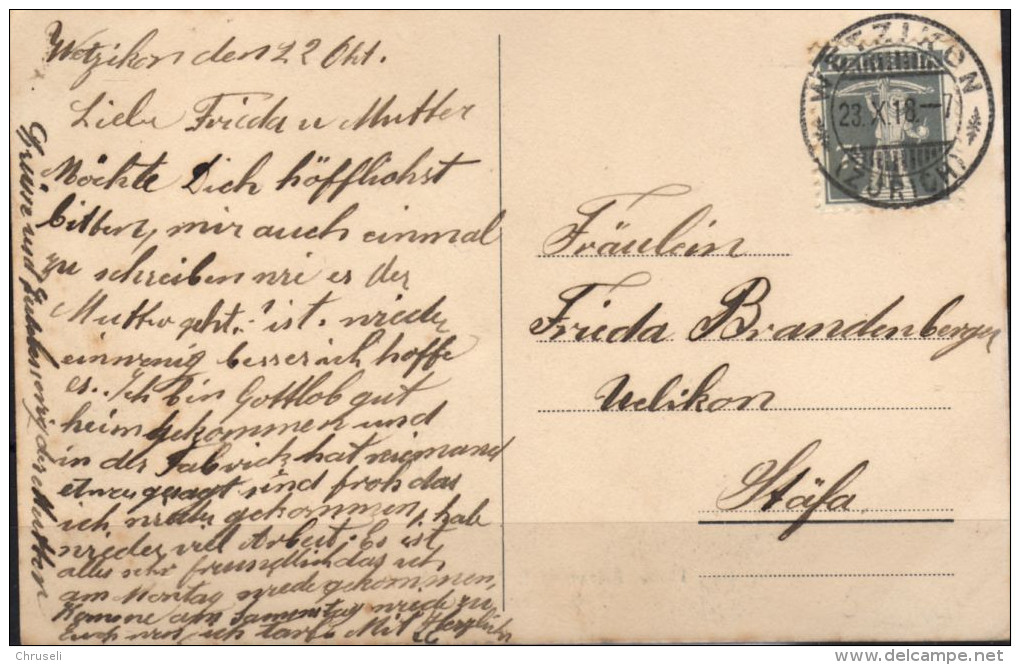 Wetzikon den 22 Okt.
Liebe Frieda u Mutter
Möchte Dich höfflichst
bitten, mir auch einmal
zu schreiben wie es der
Mutter geht.? ist. wieder
einwenig besser ich hoffe
es. Ich bin Gottlob gut
heimgekommen und
in der Fabrick hat niemand
etwas gesagt sind froh das
ich wieder gekommen, habe
wieder viel Arbeit. Es ist
alles sehr freundlich das ich
am Montag wiedergekommen,
Komme am Samstag wieder zu
Euch wen ich darf. Mit Herzlichen
Grüsse und der Mutter
WETZIKON
23.X.18.–7
(ZÜRICH)
Fräulein
Frieda Brandenberger
Uelikon
Stäfa
Chruseli
www.delcampe.net